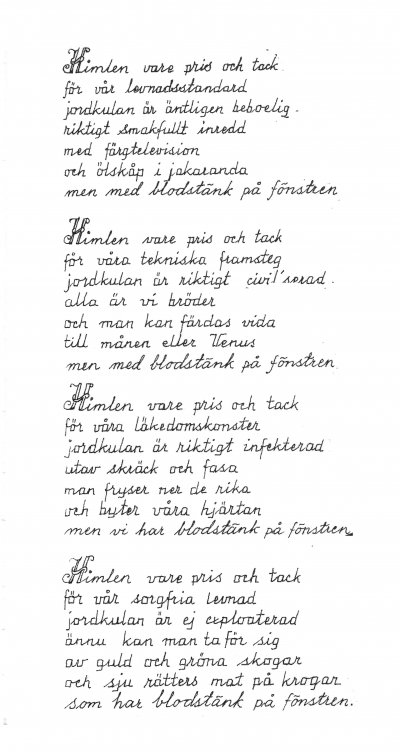 Himlen vare pris och tack
för vår levnadsstandard
jordkulan är äntligen beboelig.
riktigt smakfullt inredd
med färgtelevision
och ölskåp i jakaranda
men med blodstänk på fönstren
Himlen vare pris och tack
för våra tekniska framsteg
jordkulan är riktigt civil'serad.
alla är vi bröder
och man kan färdas vida
till månen eller Venus
men med blodstänk på fönstren
Himlen vare pris och tack
för våra läkedomskonster
jordkulan är riktigt infekterad
utav skräck och fasa
man fryser ner de rika
och byter våra hjärtan
men vi har blodstänk på fönstren
Himlen vare pris och tack
för vår sorgfria levnad
jordkulan är ej exploaterad
ännu kan man ta för sig
av guld och gröna skogar
och sju rätters mat på krogar
som har blodstänk på fönstren.